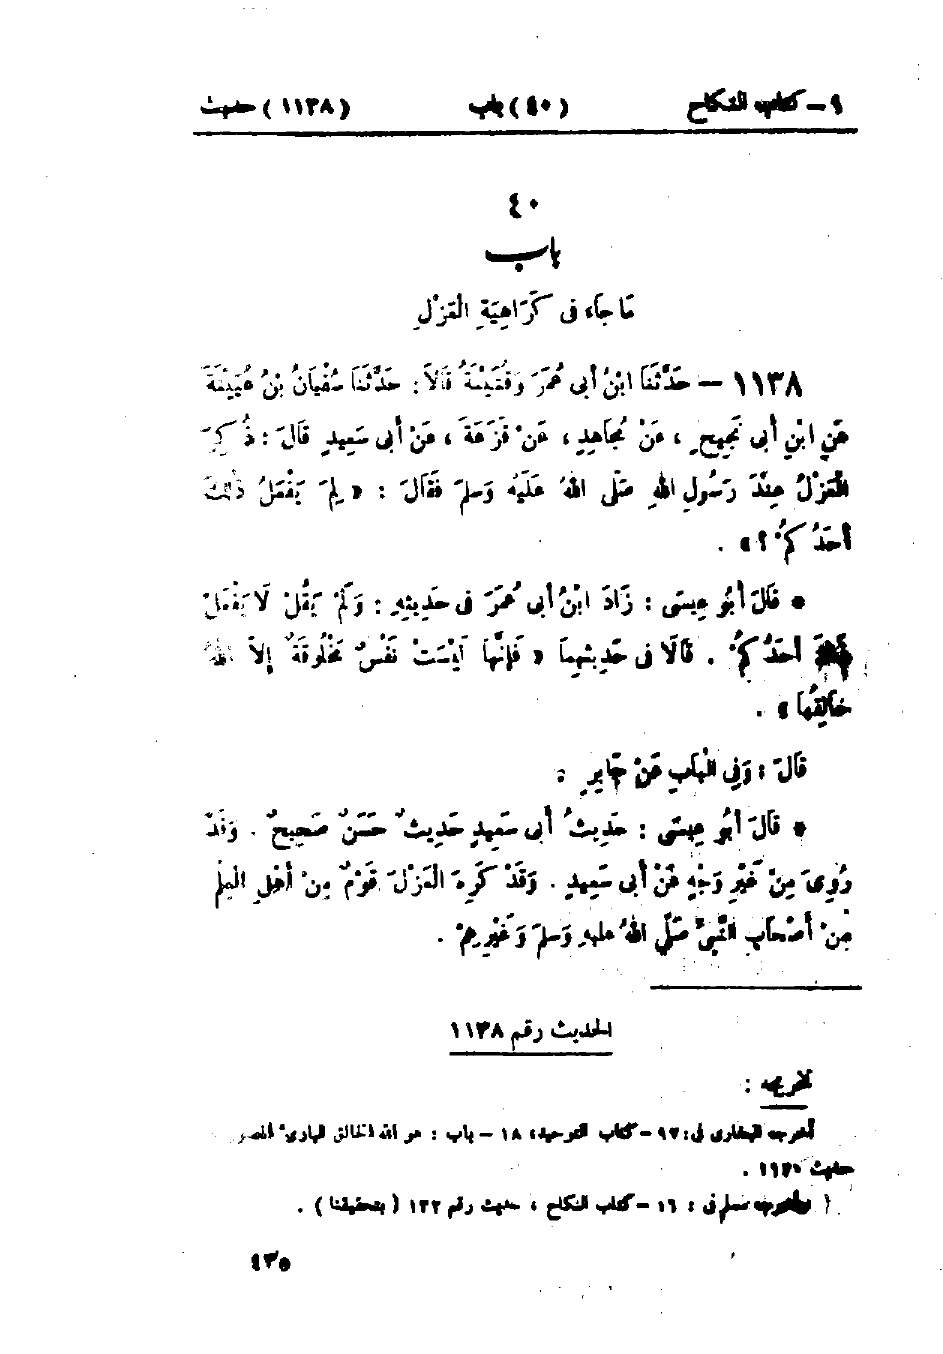 ٩ – كتاب النكاح (٤٠) باب (١١٣٨) حديث
٤٠
باب
مَا جَاءَ فى كَرَاهِيَةِ الْعَزْلِ
١١٣٨ – حَدَّثَنَا ابْنُ أَبى عُمَرَ وَقُتَيْبَةُ قَالاَ: حَدَّثَنَا سُفْيَانُ بْنُ عُيَيْنَةَ
عَنِ ابْنِ أَبى نَجِيحٍ ، عَنْ مُجَاهِدٍ ، عَنْ قَزَعَةَ ، عَنْ أَبى سَعِيدٍ قَالَ : ذُكِرَ
الْعَزْلُ عِنْدَ رَسُولِ اللهِ صَلَّى اللهُ عَلَيْهِ وَسَلَّمَ فَقَالَ : « لِمَ يَفْعَلُ ذَلِكَ
أَحَدُكُمْ ؟ » .
* قَالَ أَبُو عِيسَى : زَادَ ابْنُ أَبى عُمَرَ فى حَدِيثِهِ : وَلَمْ يَقُلْ لَا يَفْعَلْ
أَحَدُكُمْ . قَالَا فى حَدِيثِهِمَا « فَإِنَّهَا لَيْسَتْ نَفْسٌ مَخْلُوقَةٌ إِلاَّ اللهُ
خَالِقُهَا » .
قَالَ : وَفِى الْبَابِ عَنْ جَابِرٍ .
* قَالَ أَبُو عِيسَى : حَدِيثُ أَبى سَعِيدٍ حَدِيثٌ حَسَنٌ صَحِيحٌ . وَقَدْ
رُوِىَ مِنْ غَيْرِ وَجْهٍ عَنْ أَبى سَعِيدٍ . وَقَدْ كَرِهَ الْعَزْلَ قَوْمٌ مِنْ أَهْلِ الْعِلْمِ
مِنْ أَصْحَابِ النَّبِىِّ صَلَّى اللهُ عليهِ وَسَلَّمَ وَغَيْرِهِمْ .
الحديث رقم ١١٣٨
تخريجه :
أخرجه البخارى فى: ٩٧ – كتاب التوحيد، ١٨ – باب : هو الله الخالق البارىء المصور
حديث .
وأخرجه مسلم فى : ١٦ – كتاب النكاح ، حديث رقم ١٣٢ ( بتحقيقنا ) .
٤٣٥